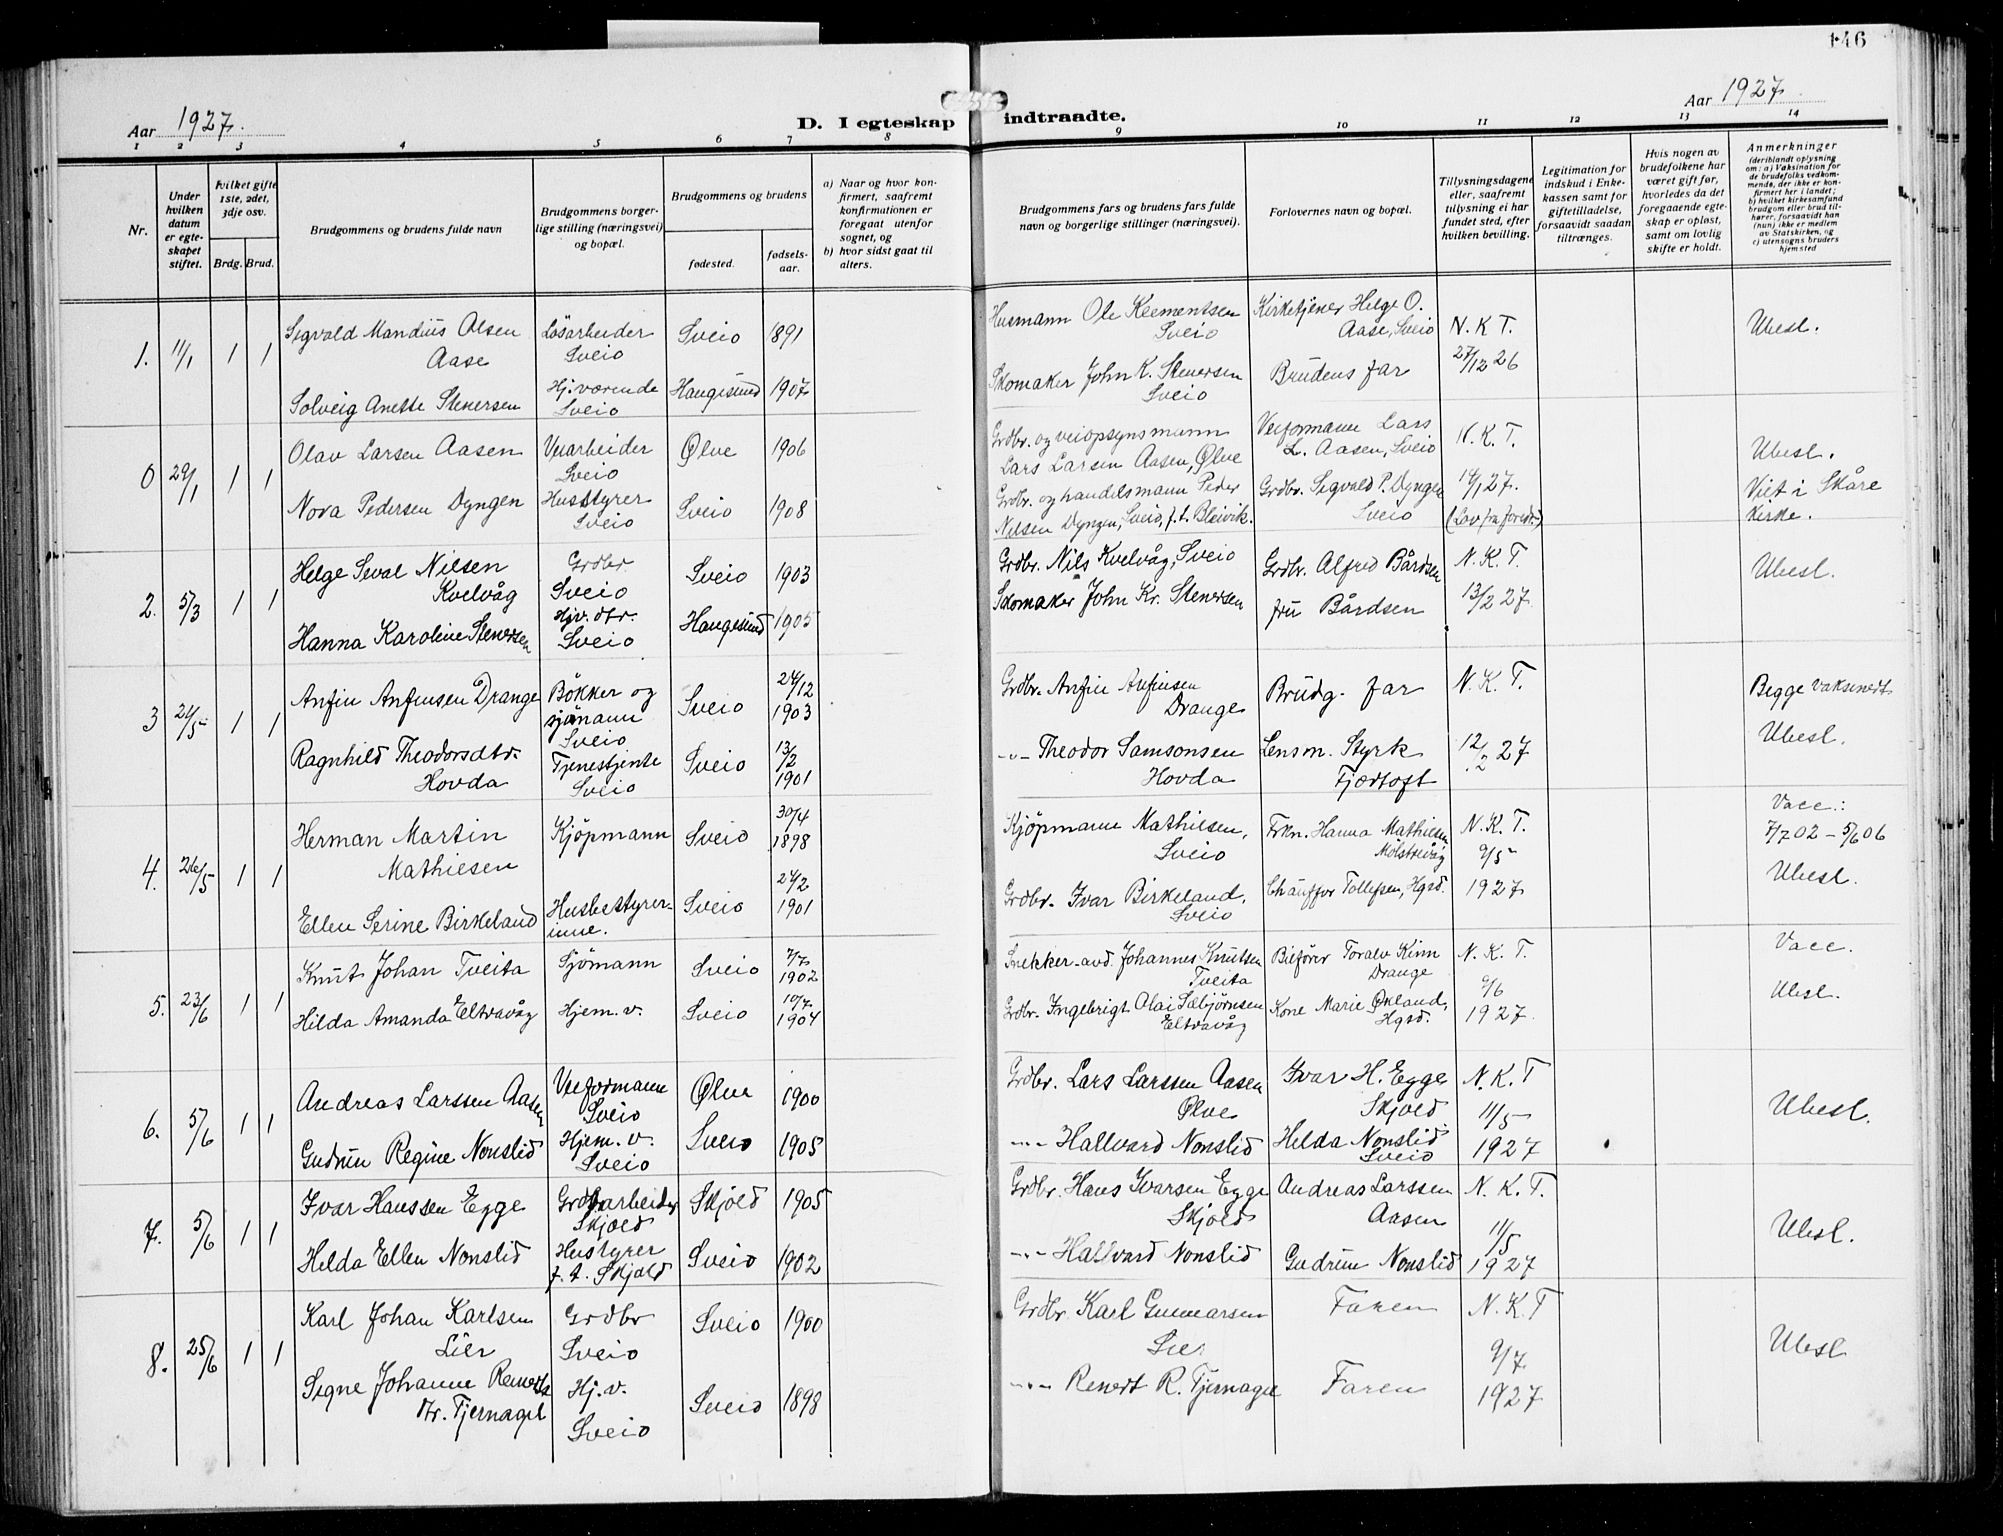 146
Aar 1927.
D. I egteskap indtraadte.
Aar 1927.
1 2 3 4 5 6 7 8 9 10 11 12 13 14
Nr.
Under hvilken datum er egteskapet stiftet.
hvilket gifte 1ste, 2det, 3dje osv.
Brdg. Brud.
Brudgommens og brudens fulde navn
Brudgommens borgerlige stilling (næringsvei) og bopæl.
Brudgommens og brudens
fødested. fødselsaar.
a) Naar og hvor konfirmert, saafremt konfirmationen er foregaat utenfor sognet, og
b) hvor sidst gaat til alters.
Brudgommens fars og brudens fars fulde navn og borgerlige stillinger (næringsvei).
Forlovernes navn og bopæl.
Tillysningsdagene eller, saafremt tillysning ei har fundet sted, efter hvilken bevilling.
Legitimation for indskud i Enkekassen samt for giftetilladelse, forsaavidt saadan tiltrænges.
Hvis nogen av brudefolkene har været gift før, hvorledes da det foregaaende egteskap er opløst, samt om lovlig skifte er holdt.
Anmerkninger
(deriblandt oplysning om: a) Vaksination for de brudefolks vedkommende, der ikke er konfirmert her i landet; b) hvilket kirkesamfund brudgom eller brud tilhører, forsaavidt han (hun) ikke er medlem av Statskirken, og c) utensogns bruders hjemsted
1. 11/1 1 1
Sigvald Mandius Olsen Aase
Løsarbeider Sveio
Sveio 1891
Husmann Ole Klementsen Sveio
Kirketjener Helge O. Aase, Sveio
N. K. T.
27/12 26
Ubesl.
Solveig Anette Stenersen
Hj.værende Sveio
Haugesund 1907
Skomaker John K. Stenersen Sveio
Brudens far
0 29/1 1 1
Olav Larsen Aasen
Veiarbeider Sveio
Ølve 1906
Grdbr. og veiopsynsmann Lars Larsen Aasen, Ølve
Veiformann Lars L. Aasen, Sveio
N. K. T.
Ubesl.
Nora Pedersen Dyngen
Husstyrer Sveio
Sveio 1908
Grdbr. og handelsmann Peder Nilsen Dyngen, Sveio, f.t. Bleivik.
Grdbr. Sigvald P. Dyngen Sveio
14/1 27.
Viet i Skåre kirke.
2. 5/3 1 1
Helge Seval Nilsen Kvelvåg
Grdbr. Sveio
Sveio 1903
Grdbr. Nils Kvelvåg, Sveio
Grdbr. Alfred Bårdsen
N. K. T.
Ubesl.
Hanna Karoline Stenersen
Hjv. dtr. Sveio
Haugesund 1905
Skomaker John Kr. Stenersen
fru Bårdsen
13/2 27
3 21/5 1 1
Anfin Anfinsen Drange
Bøkker og sjømann Sveio
Sveio 24/12 1903
Grdbr. Anfin Anfinsen Drange
Brudg. far
N. K. T.
Begge vaksinert
Ragnhild Theodorsdtr. Hovda
Tjenestjente Sveio
Sveio 13/2 1901
-"- Theodor Samsonsen Hovda
Lensm. Styrk Fjærtoft
12/2 27
Ubesl.
4. 26/5 1 1
Herman Martin Mathiesen
Kjøpmann
Sveio 30/4 1898
Kjøpmann Mathiesen, Sveio
Frkn. Hanna Mathiesen Mølstrevåg
N. K. T.
9/5
Vacc.:
7/7 02 - 5/6 06
Ellen Serine Birkeland
Husbestyrerinne.
Sveio 24/2 1901
Grdbr. Ivar Birkeland, Sveio
Chauffør Tollefsen, Hgsd.
1927
Ubesl.
5. 23/6 1 1
Knut Johan Tveita
Sjømann
Sveio 7/7 1902
Snekker avd. Johannes Knutsen Tveita
Bilfører Toralv Kinn Drange
N. K. T.
9/6
Vacc.
Hilda Amanda Eltravåg
Hjem. v.
Sveio 10/7 1904
Grdbr. Ingebrigt Olai Sæbjørnsen Eltravåg
Kone Marie Økland, Hgsd.
1927.
Ubesl.
6. 5/6 1 1
Andreas Larssen Aasen
Veiformann Sveio
Ølve 1900
Grdbr. Lars Larssen Aasen Ølve
Ivar H. Egge Skjold
N. K. T
11/5
Ubesl.
Gudrun Regine Nonslid
Hjem. v. Sveio
Sveio 1905
-"- Hallvard Nonslid
Hilda Nonslid Sveio
1927
7. 5/6 1 1
Ivar Hanssen Egge
Grdbrarbeider Skjold
Skjold 1905
Grdbr. Hans Ivarsen Egge Skjold
Andreas Larssen Aasen
N. K. T.
11/5
Ubesl.
Helda Ellen Nonslid
Hustyrer f. t. Skjold
Sveio 1902
-"- Hallvard Nonslid
Gudrun Nonslid
1927
8. 25/6 1 1
Karl Johan Karlsen Lier
Grdbr Sveio
Sveio 1900
Grdbr. Karl Gunnarsen Lier
Faren
N. K. T
9/7
Ubesl
Signe Johanne Renerts dtr. Tjernagel
Hj. v. Sveio
Sveio 1898
-"- Renert R. Tjernagel
Faren
1927